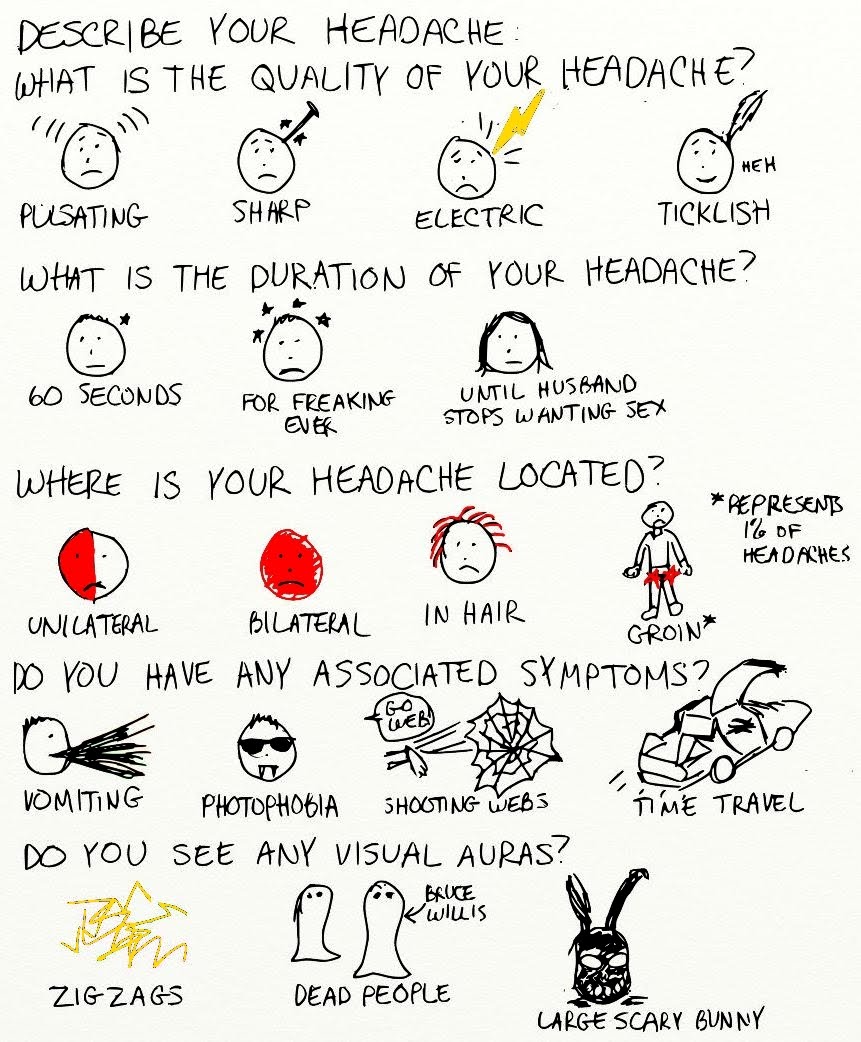 DESCRIBE YOUR HEADACHE:
WHAT IS THE QUALITY OF YOUR HEADACHE?
HEH
PULSATING SHARP ELECTRIC TICKLISH
WHAT IS THE DURATION OF YOUR HEADACHE?
60 SECONDS
FOR FREAKING
EVER
UNTIL HUSBAND
STOPS WANTING SEX
WHERE IS YOUR HEADACHE LOCATED?
*REPRESENTS
1% OF
HEADACHES
UNILATERAL BILATERAL IN HAIR GROIN*
DO YOU HAVE ANY ASSOCIATED SYMPTOMS?
GO
WEB!
VOMITING PHOTOPHOBIA SHOOTING WEBS TIME TRAVEL
DO YOU SEE ANY VISUAL AURAS?
BRUCE
WILLIS
ZIGZAGS DEAD PEOPLE LARGE SCARY BUNNY